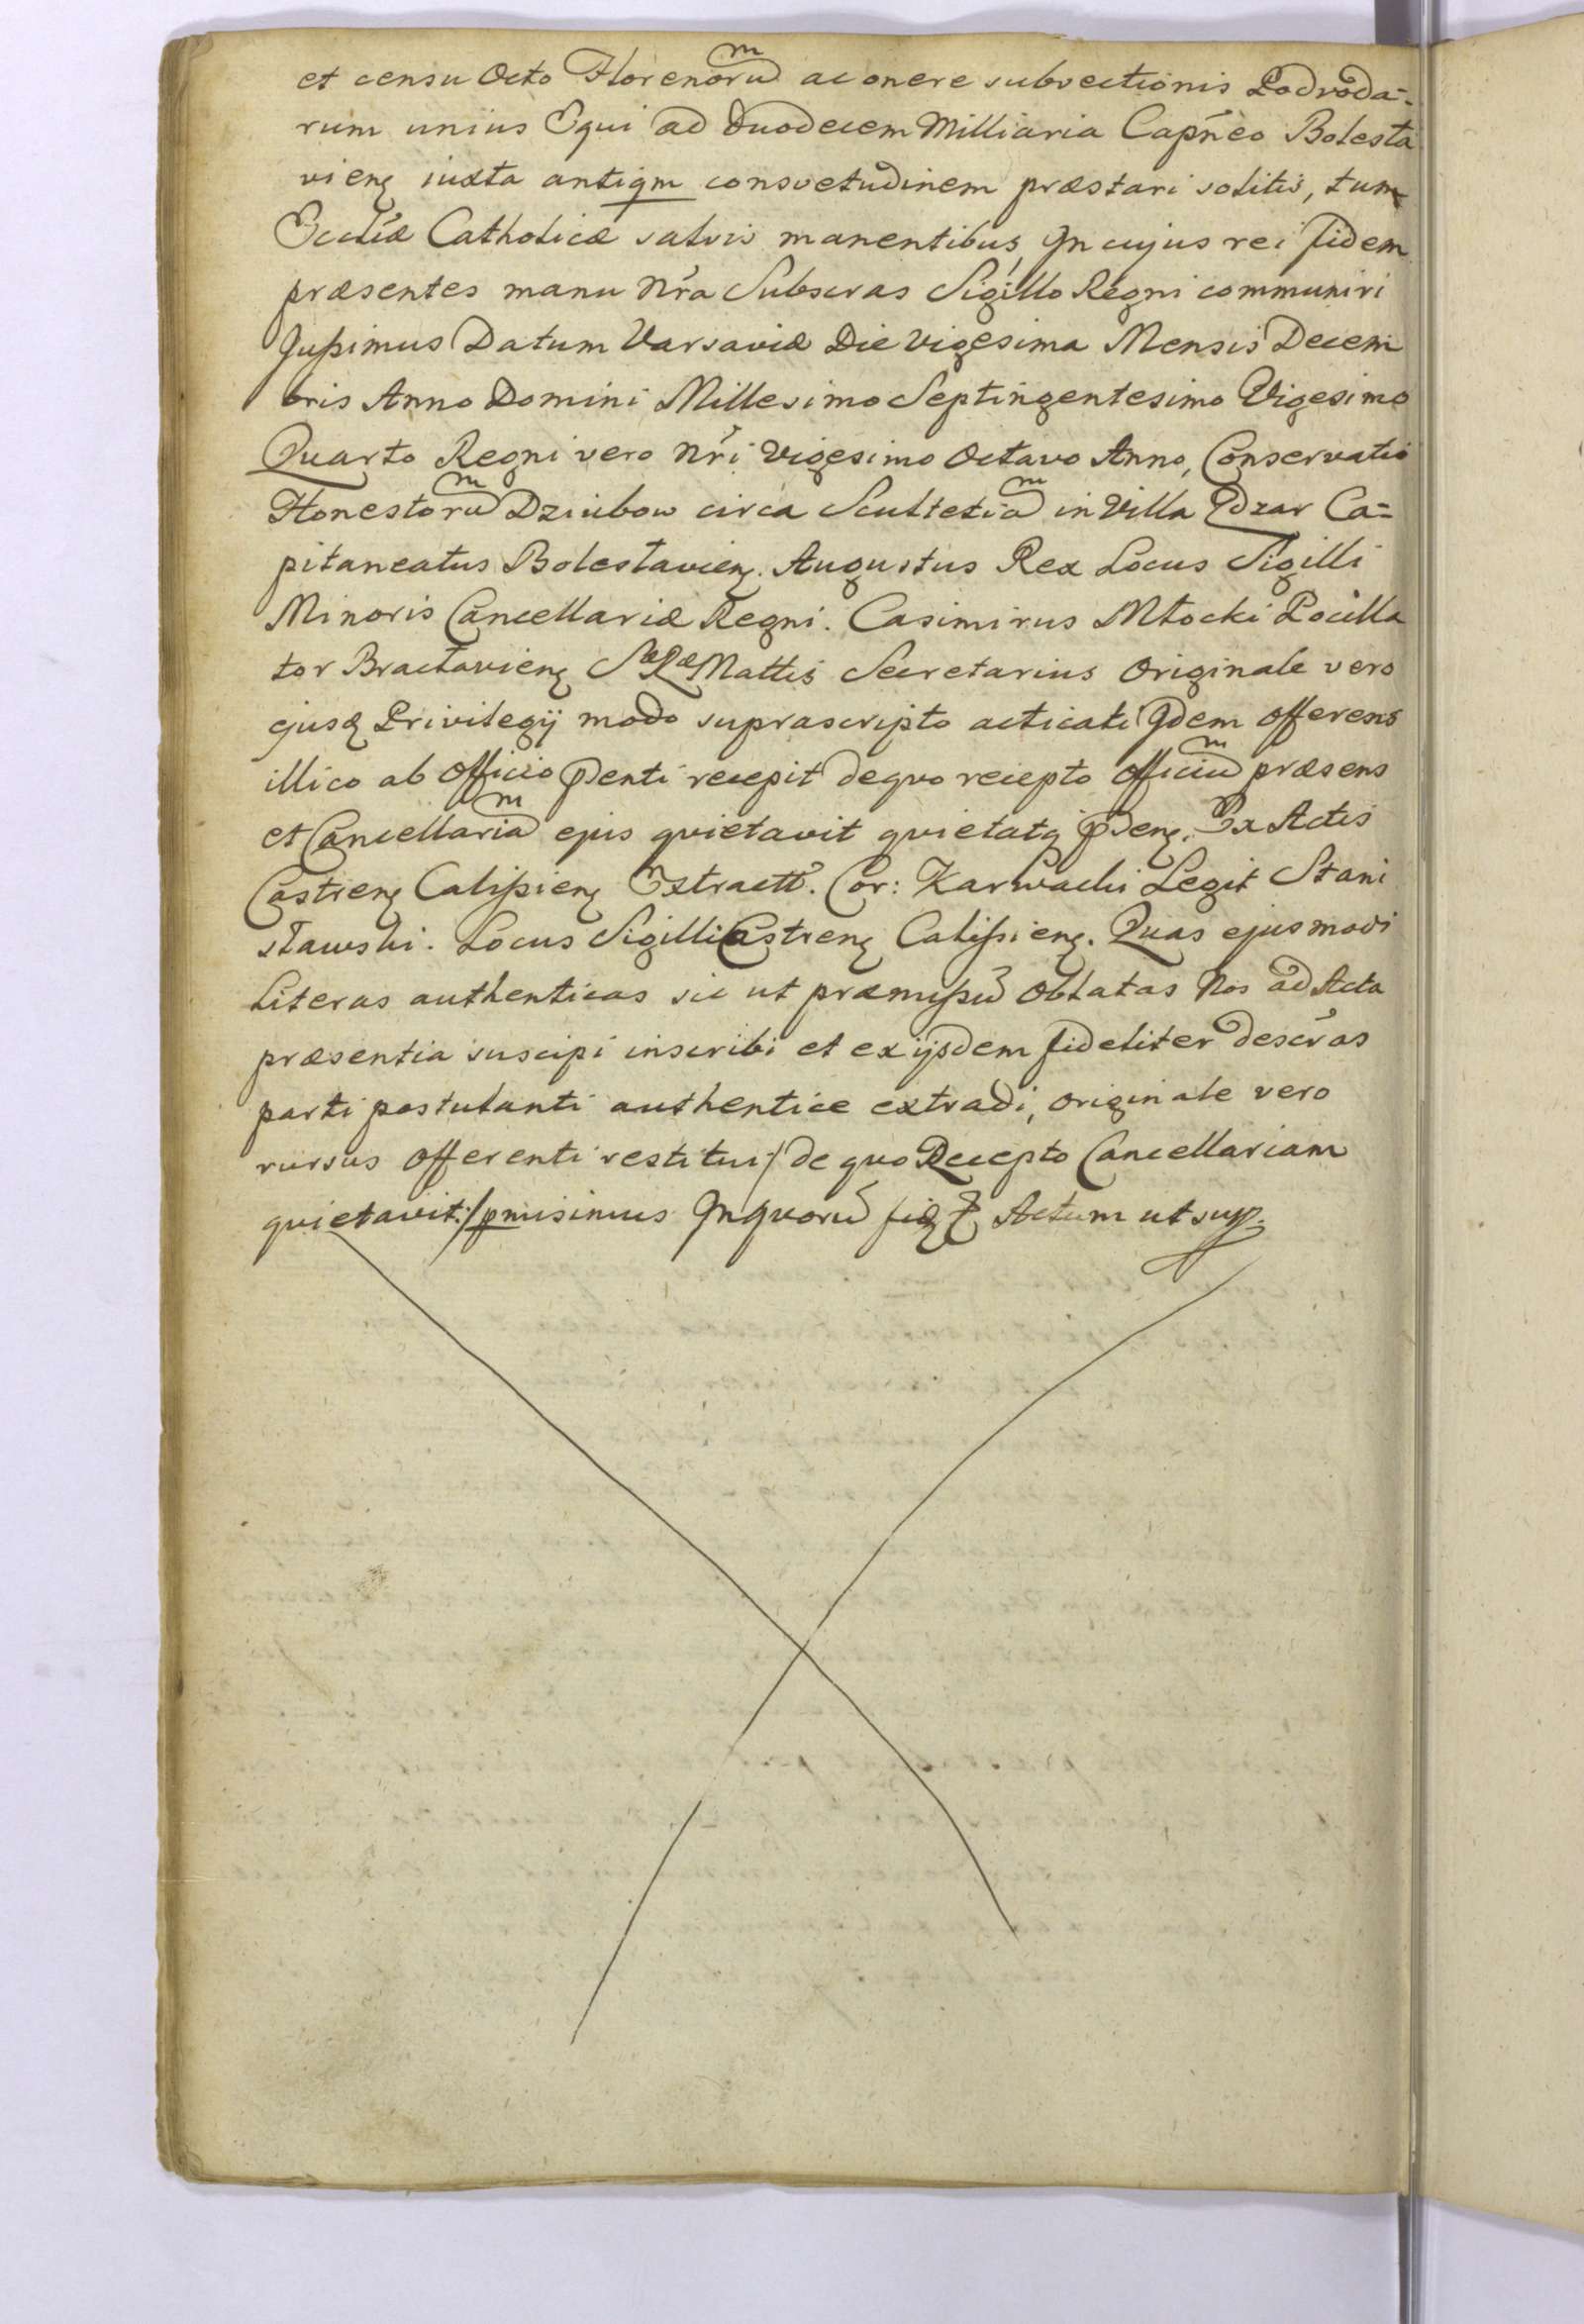 et censu Octo Florenorũ ac onere subvectionis Podvoda-
rum unius Equi ad Duodecem Milliaria Capńeo Bolesta
vieng iuxta antiqm consvetudinem præstari solitis, tum
Eccliæ Catholicæ salvis manentibus, In cujus rei fidem
præsentes manu Nra Subscras Sigillo Regni communiri
Jussimus Datum Varsaviæ Die Vigesima Mensis Decem
bris Anno Domini Millesimo Septingentesimo Vigesimo
Quarto Regni vero Nri Vigesimo Octavo Anno, Conservatio
Honestorũ Dziubow circa Scultetiã in Villa Zdzar Ca=
pitaneatus Bolestavieng. Augustus Rex Locus Sigilli
Minoris Cancellariæ Regni. Casimirus Młocki Pocilla
tor Bractavieng SæRæMattis Secretarius Originale vero
ejusd Privilegij modo suprascripto acticati Idem offerens
illico ab Officio pdenti recepit dequo recepto Officiũ præsens
et Cancellariã ejus qvietavit qvietatq pdeng. Ex Actis
Castreng Calissieng Extractt. Cor: Karwacki Legit Stani
sławski. Locus Sigilli Castreng Calissieng. Quas ejusmodi
Literas authenticas sic ut præmissũ Oblatas Nos ad Acta
præsentia suscipi inscribi et ex ijsdem fideliter descras
parti postulanti authentice extradi, originale vero
rursus Offerenti restitui / de quo Recepto Cancellariam
qvietavit:/ pmisimus In qvorũ fid Actum ut sup.